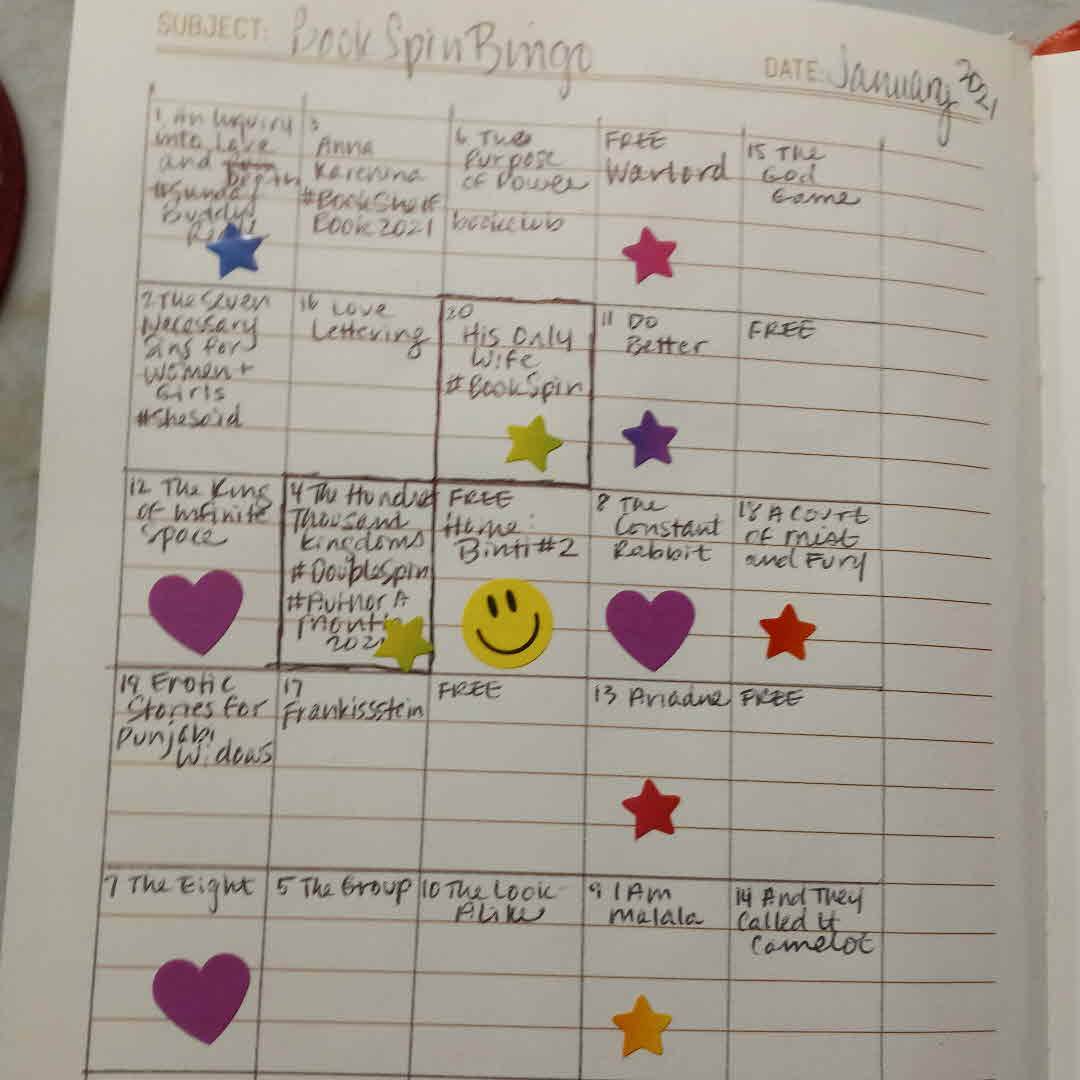 SUBJECT: BookSpinBingo
DATE: January 2021
1 An Inquiry
into Love
and Death
#Sunday
Buddy
3
Anna
Karenina
#BookShelf
Book2021
6 The
Purpose
of Power
bookclub
FREE
Warlord
15 The
God
Game
2 The Seven
Necessary
Sins for
Women +
Girls
#SheSaid
16 Love
Lettering
20
His Only
Wife
#BookSpin
11 Do
Better
FREE
12 The King
of Infinite
Space
4 The Hundred
Thousand
Kingdoms
#DoubleSpin
#AuthorA
Month
2021
FREE
Home:
Binti #2
8 The
Constant
Rabbit
18 A Court
of Mist
and Fury
19 Erotic
Stories for
Punjabi
Widows
17
Frankissstein
FREE
13 Ariadne
FREE
7 The Eight
5 The Group
10 The Look-
Alike
9 I Am
Malala
14 And They
Called It
Camelot